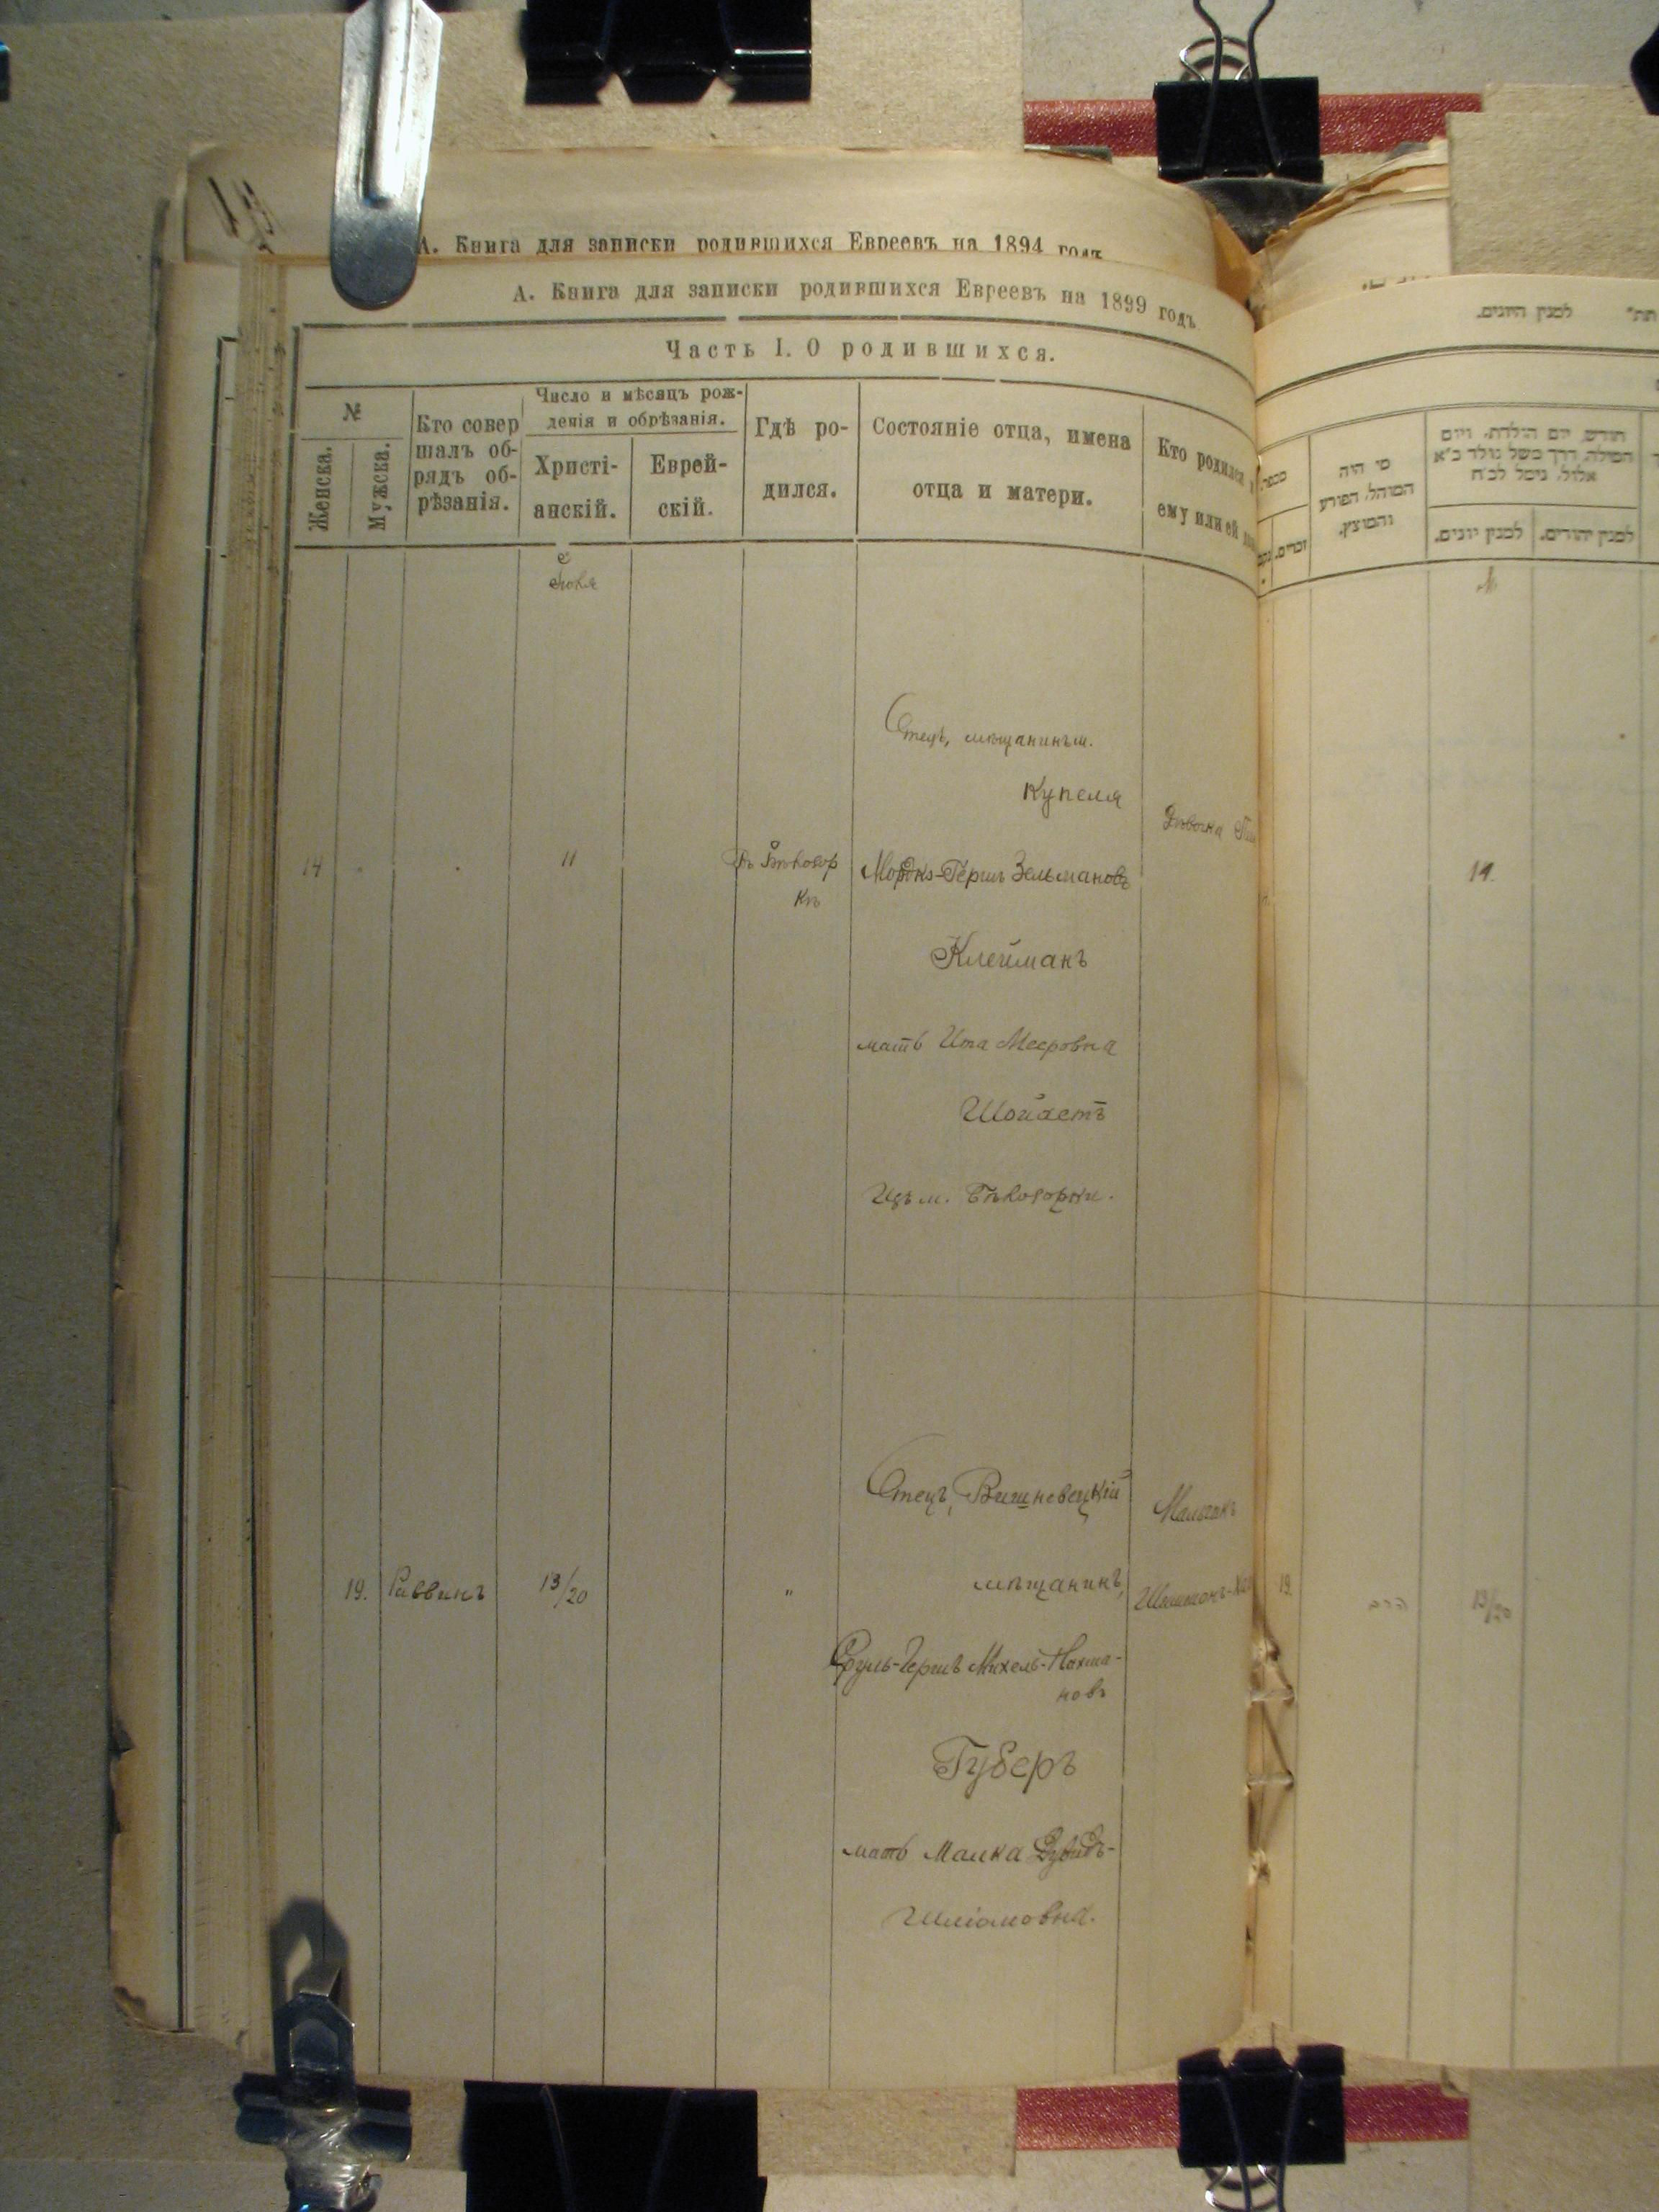 А. Книга для записки родившихся Евреевъ на 1894 годъ
А. Книга для записки родившихся Евреевъ на 1899 годъ
Часть I. О родившихся.
№
Женска.
Мужска.
Кто совер
шалъ об-
рядъ об-
рѣзанія.
Число и мѣсяцъ рож-
денія и обрѣзанія.
Христі-
анскій.
Еврей-
скій.
Гдѣ ро-
дился.
Состояніе отца, имена
отца и матери.
Кто родился
ему или ей
Отецъ, мѣщанинъ м.
Купеля
14
11
Мордко-Гершъ Зельмановъ
Клейманъ
мать Ита Мееровна
Шойхетъ
Изъ м. Бѣлозорки.
Дѣвочка
19.
Раввинъ
13/20
"
Отецъ, Вишневецкій
мѣщанинъ,
Сруль-Гершъ Михель-Нахма-
новъ
Губеръ
мать Малка Дувидъ-
Шліомовна.
Мальчикъ
לסנין היונים.
מספר
זכרים.
מי היה
המוהל, הפורע
והמוצץ.
חודש, יום הולדת, ויום
המילה,
לסנין יונים.
לסנין יהודים.
14.
19.
הרב
13/20